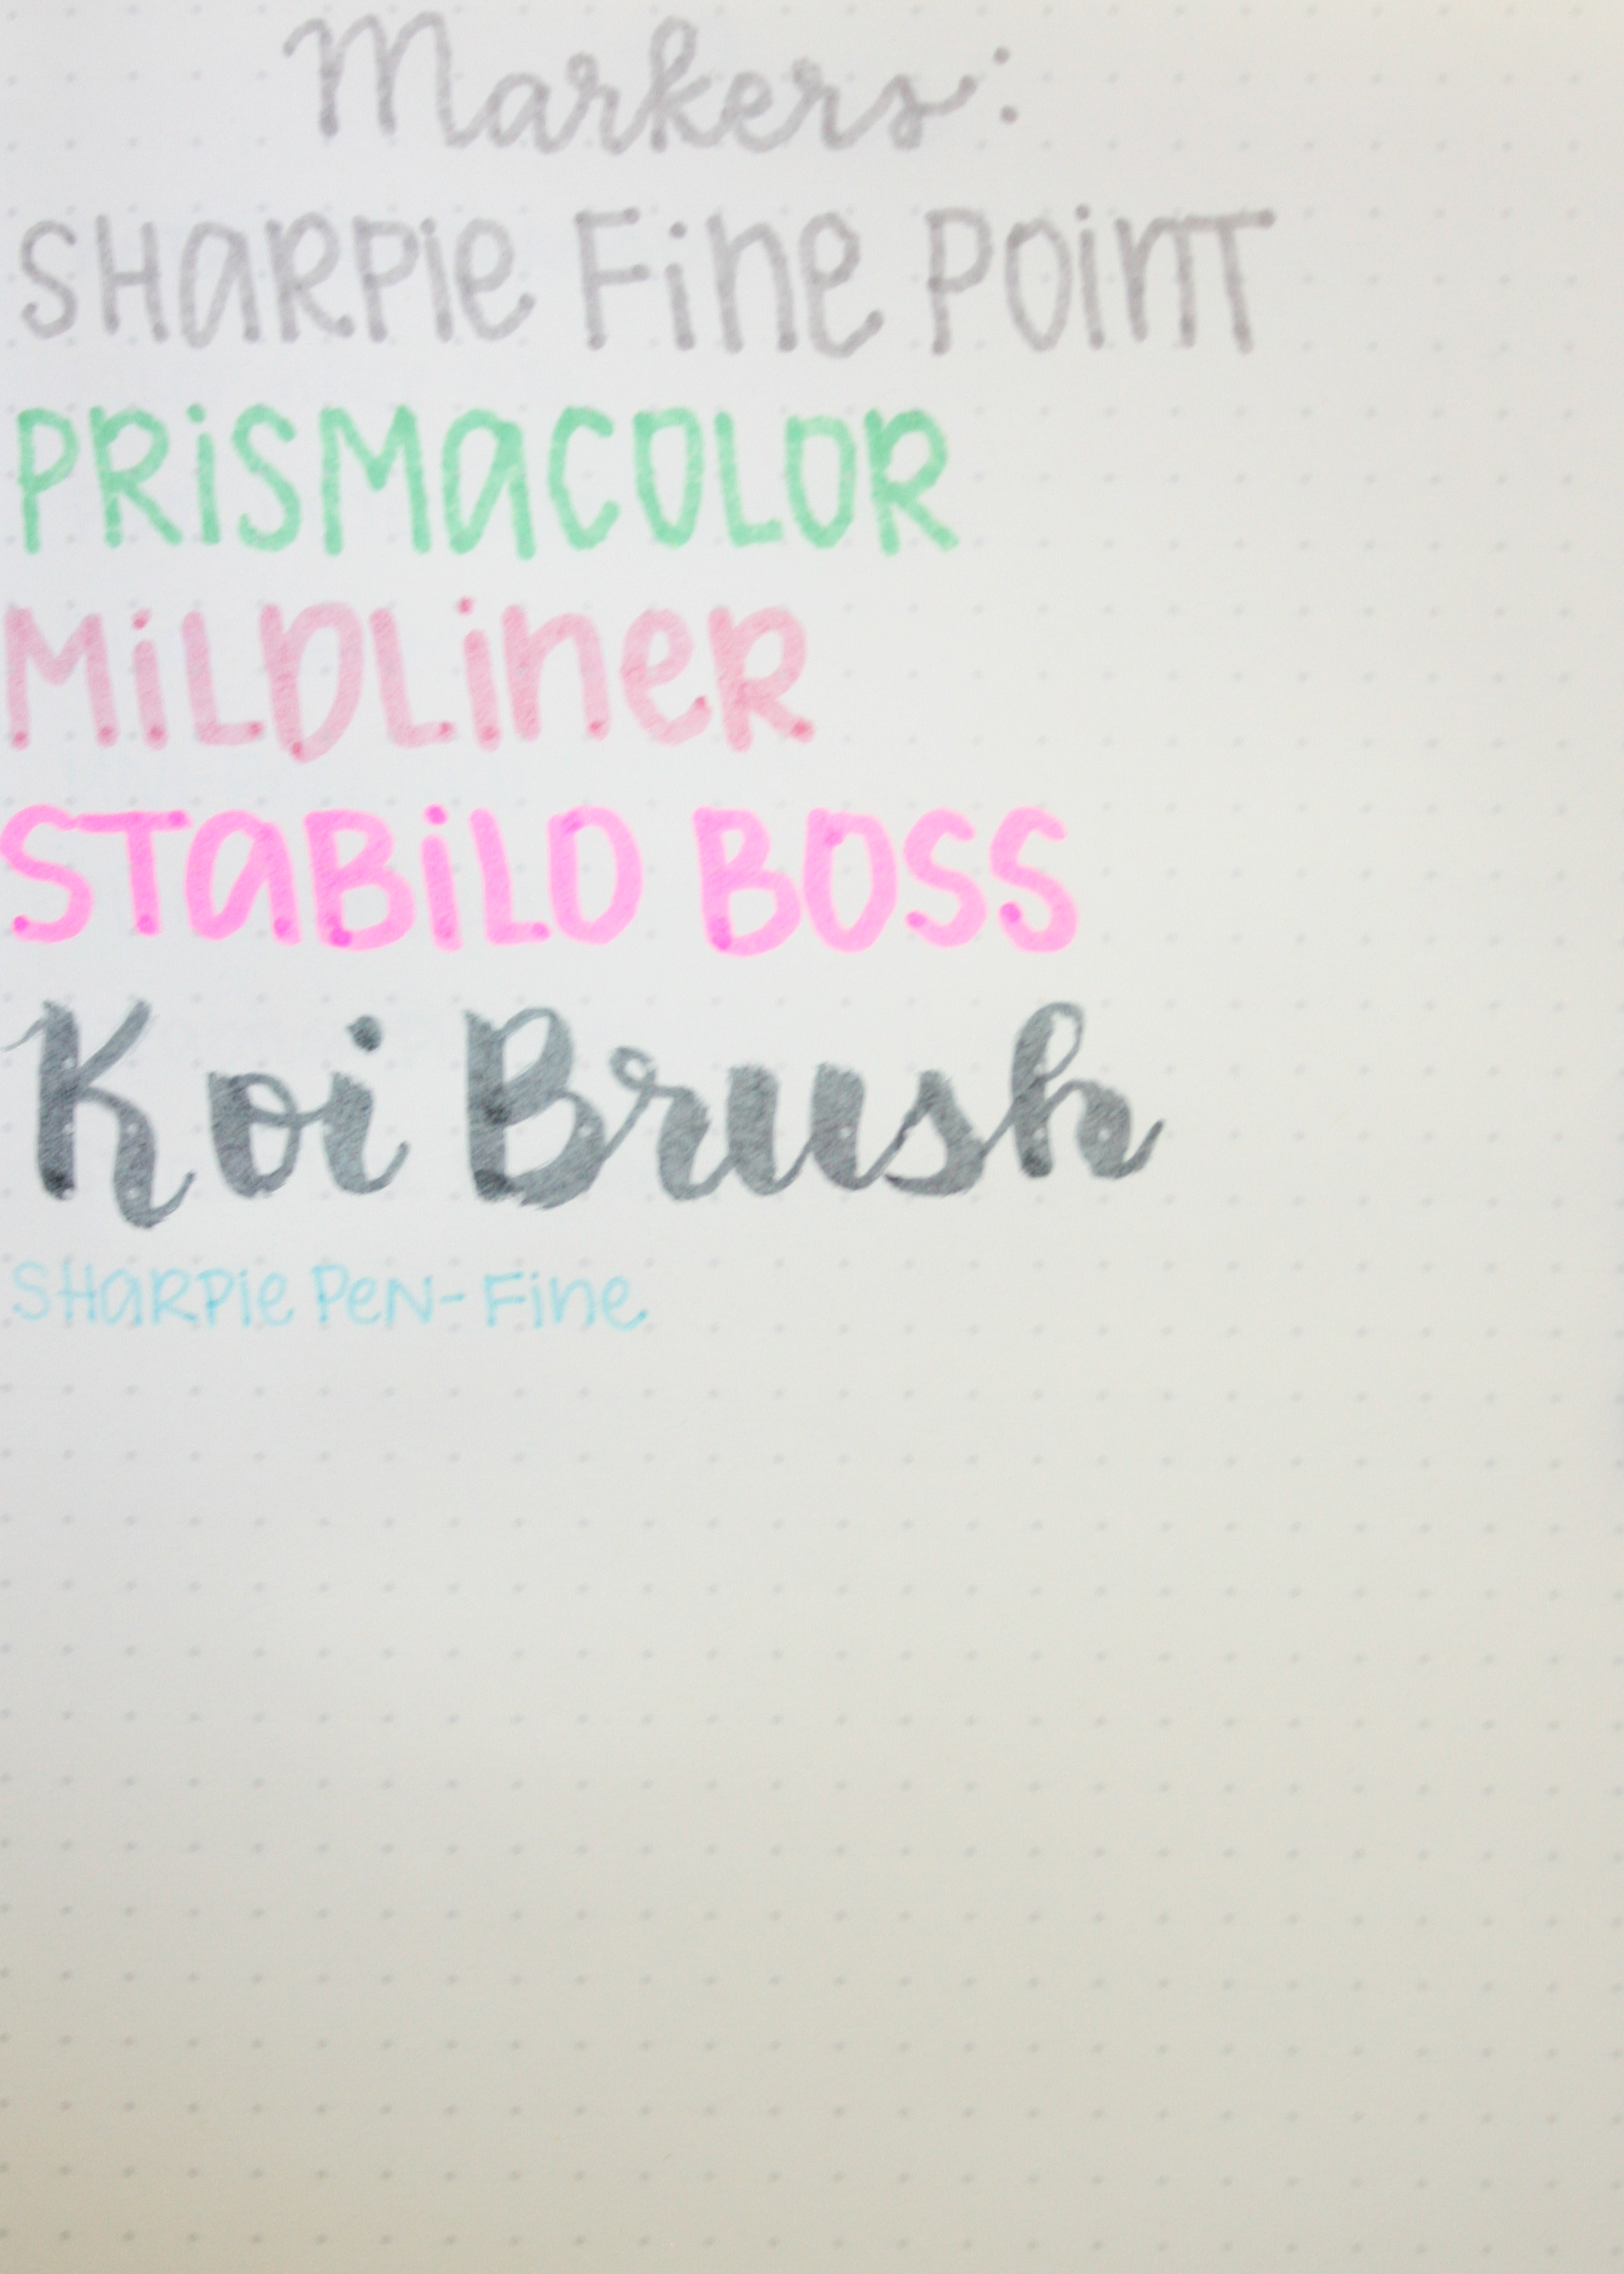 Markers:
SHaRPie Fine POinT
PRiSMaCOLOR
MiLDLineR
STaBiLO BOSS
Koi Brush
SHaRPie PeN-Fine